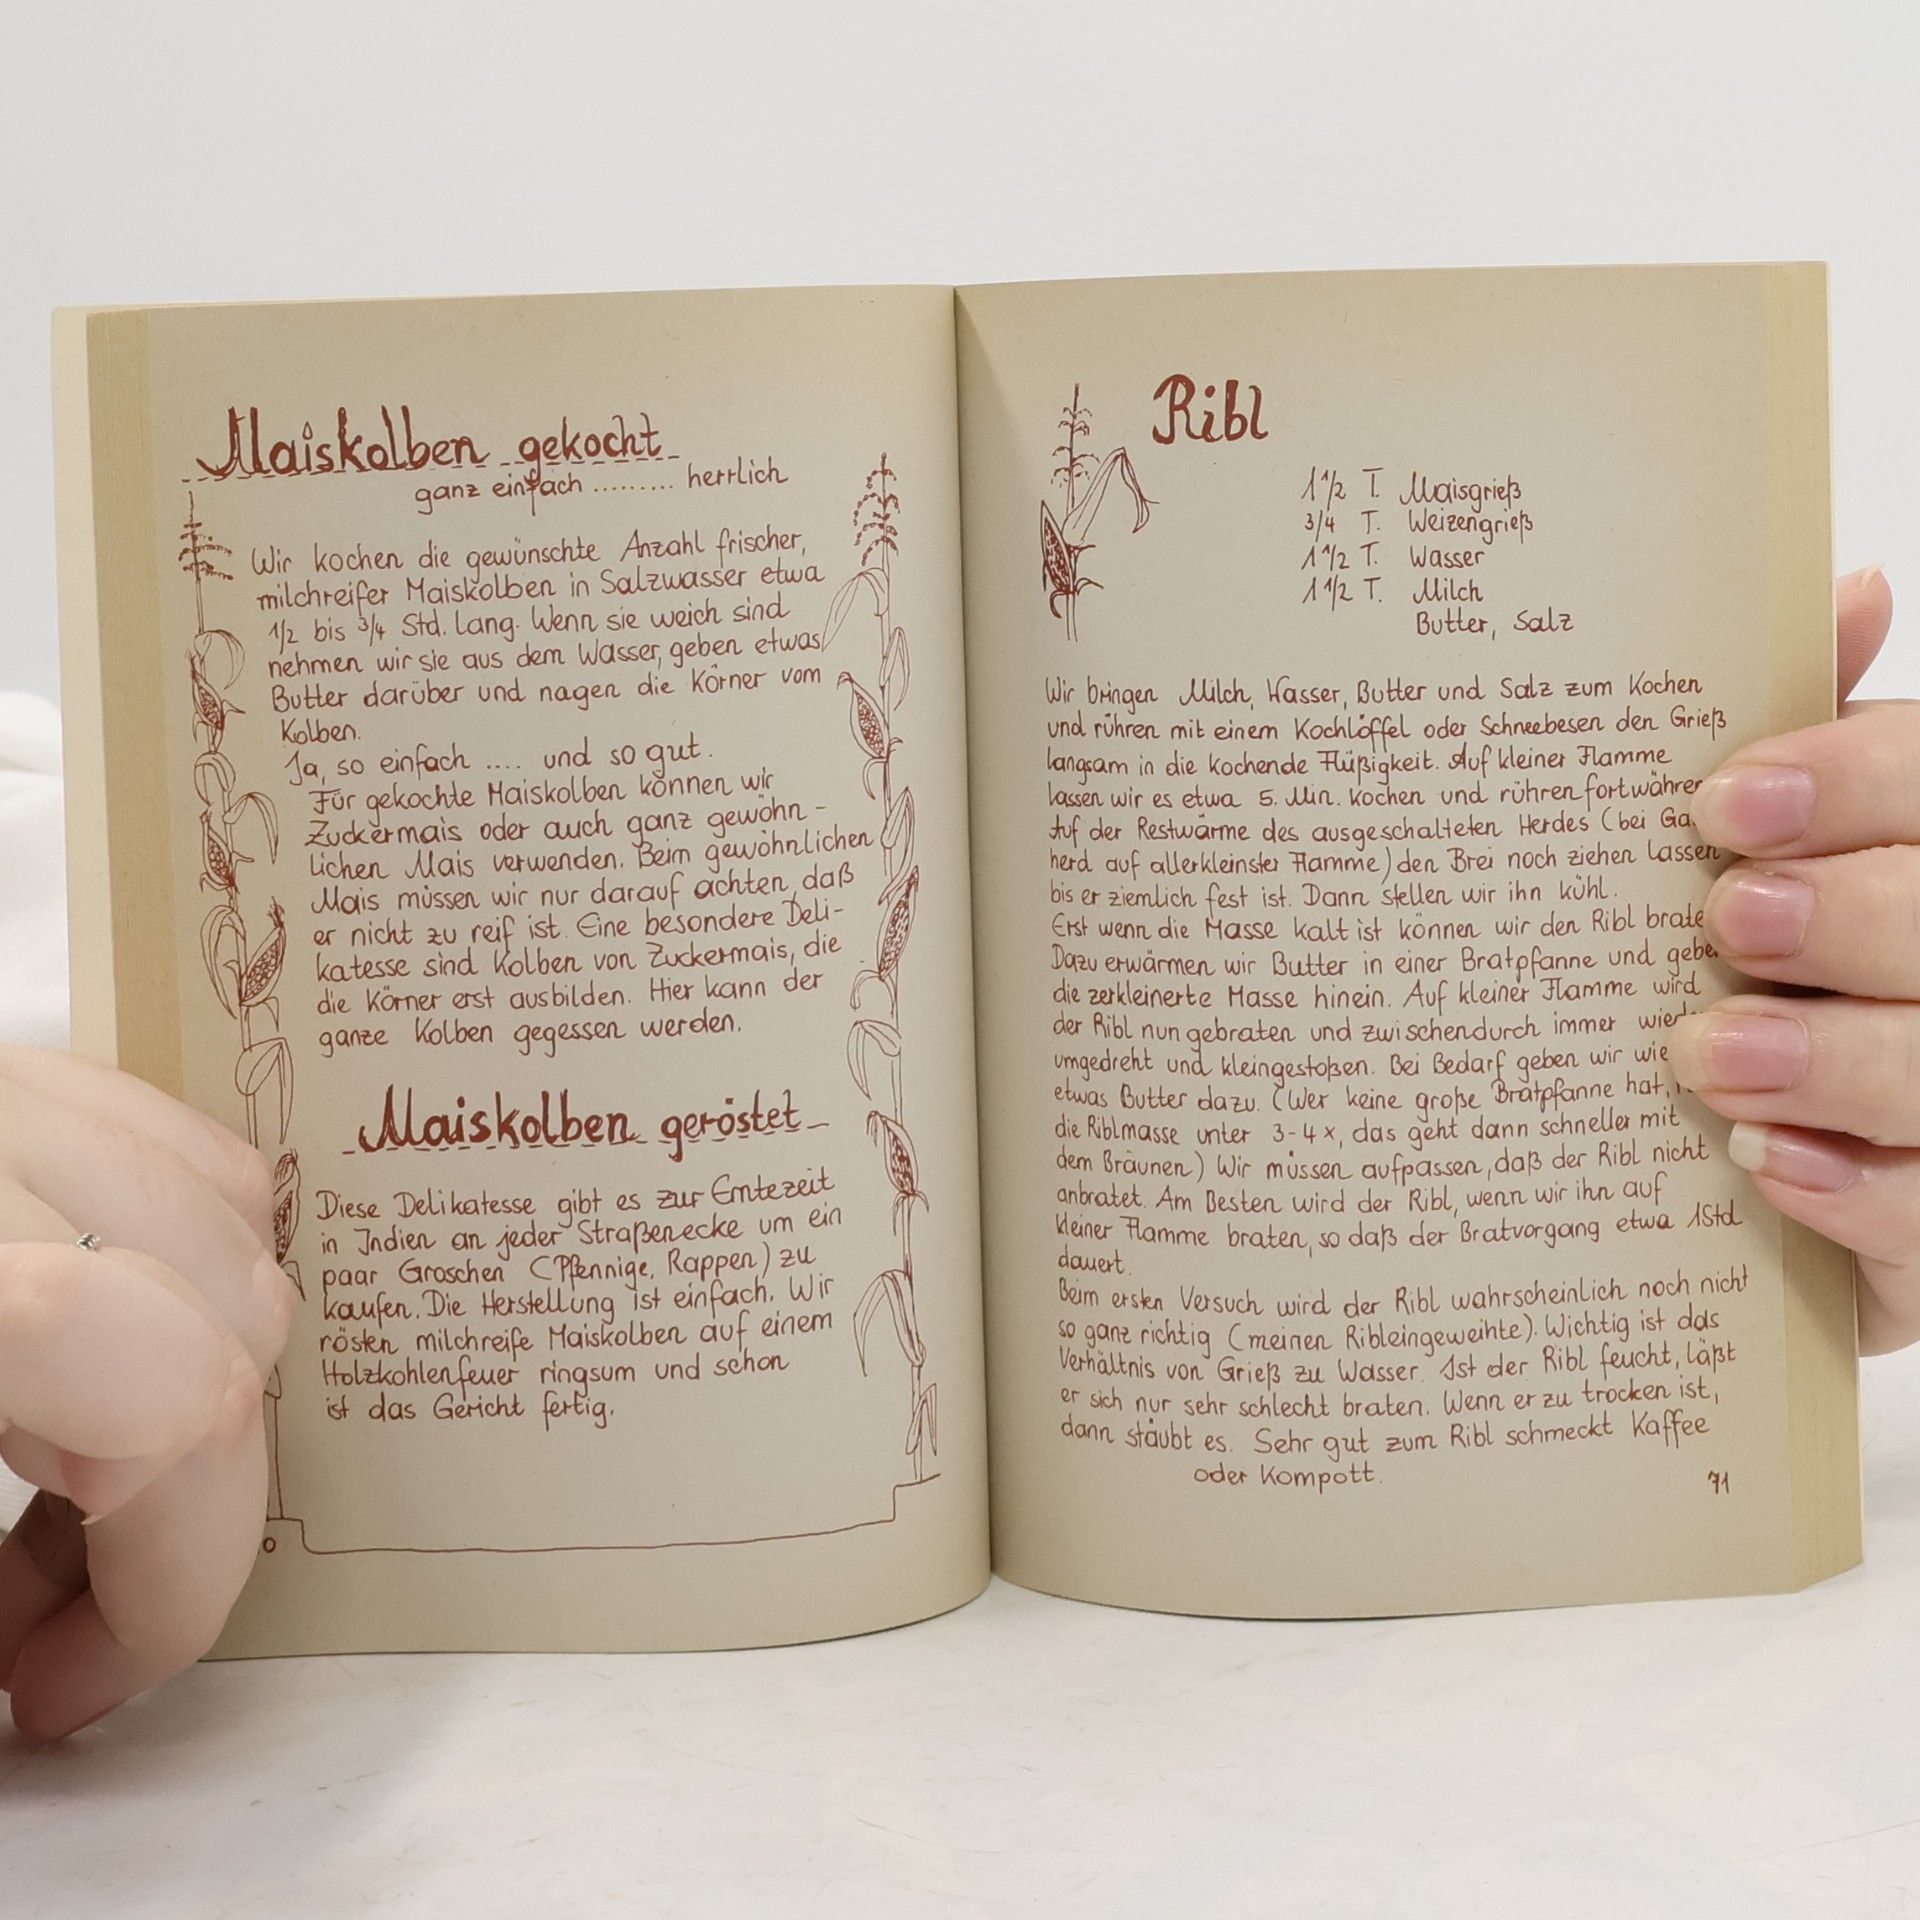 Maiskolben gekocht
ganz einfach ......... herrlich
Wir kochen die gewünschte Anzahl frischer,
milchreifer Maiskolben in Salzwasser etwa
1/2 bis 3/4 Std. lang. Wenn sie weich sind
nehmen wir sie aus dem Wasser, geben etwas
Butter darüber und nagen die Körner vom
Kolben.
Ja, so einfach .... und so gut.
Für gekochte Maiskolben können wir
Zuckermais oder auch ganz gewöhn-
lichen Mais verwenden. Beim gewöhnlichen
Mais müssen wir nur darauf achten, daß
er nicht zu reif ist. Eine besondere Deli-
katesse sind Kolben von Zuckermais, die
die Körner erst ausbilden. Hier kann der
ganze Kolben gegessen werden.
Maiskolben geröstet
Diese Delikatesse gibt es zur Erntezeit
in Indien an jeder Straßenecke um ein
paar Groschen (Pfennige, Rappen) zu
kaufen. Die Herstellung ist einfach. Wir
rösten milchreife Maiskolben auf einem
Holzkohlenfeuer ringsum und schon
ist das Gericht fertig.
Ribl
1 1/2 T. Maisgrieß
3/4 T. Weizengrieß
1 1/2 T. Wasser
1 1/2 T. Milch
Butter, Salz
Wir bringen Milch, Wasser, Butter und Salz zum Kochen
und rühren mit einem Kochlöffel oder Schneebesen den Grieß
langsam in die kochende Flüßigkeit. Auf kleiner Flamme
lassen wir es etwa 5. Min. kochen und rühren
Auf der Restwärme des ausgeschalteten Herdes (bei
herd auf allerkleinster Flamme) den Brei noch ziehen lassen
bis er ziemlich fest ist. Dann stellen wir ihn kühl.
Erst wenn die Masse kalt ist können wir den Ribl
Dazu erwärmen wir Butter in einer Bratpfanne und
die zerkleinerte Masse hinein. Auf kleiner Flamme wird
der Ribl nun gebraten und zwischendurch immer
umgedreht und kleingestoßen. Bei Bedarf geben wir
etwas Butter dazu. (Wer keine große Bratpfanne hat,
die Riblmasse unter 3-4x, das geht dann schneller mit
dem Bräunen) Wir müssen aufpassen, daß der Ribl nicht
anbratet. Am Besten wird der Ribl, wenn wir ihn auf
kleiner Flamme braten, so daß der Bratvorgang etwa 1Std
dauert.
Beim ersten Versuch wird der Ribl wahrscheinlich noch nicht
so ganz richtig (meinen Ribleingeweihte). Wichtig ist das
Verhältnis von Grieß zu Wasser. Ist der Ribl feucht, läßt
er sich nur sehr schlecht braten. Wenn er zu trocken ist,
dann stäubt es. Sehr gut zum Ribl schmeckt Kaffee
oder Kompott.
71